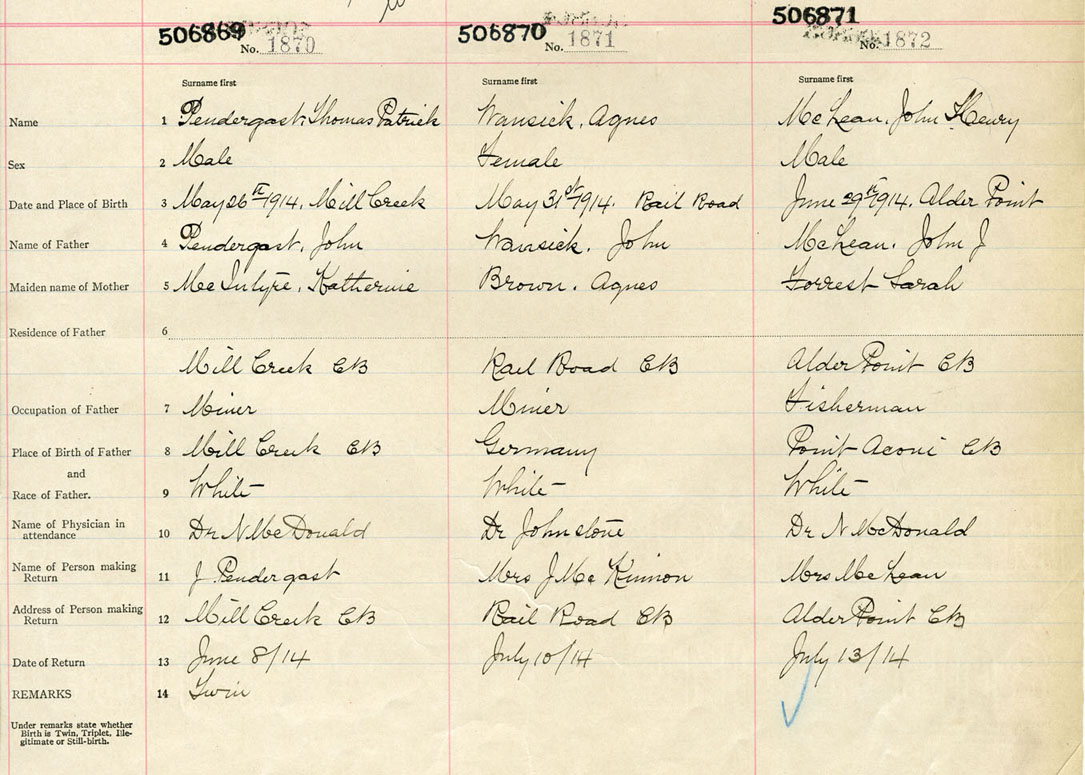 506869 506870 506871
No. 1870 No. 1871 No. 1872
Surname first Surname first Surname first
Name 1 Pendergast, Thomas Patrick Wansick, Agnes McLean, John Henry
Sex 2 Male Female Male
Date and Place of Birth 3 May 26th 1914, Mill Creek May 31st 1914. Rail Road June 29th 1914, Alder Point
Name of Father 4 Pendergast, John Wansick, John McLean, John J
Maiden name of Mother 5 McIntyre, Katherine Brown, Agnes Forrest Sarah
Residence of Father 6
Mill Creek CB Rail Road CB Alder Point CB
Occupation of Father 7 Miner Miner Fisherman
Place of Birth of Father 8 Mill Creek CB Germany Point Aconi CB
and
Race of Father. 9 White White White
Name of Physician in attendance 10 Dr N McDonald Dr Johnstone Dr N McDonald
Name of Person making Return 11 J Pendergast Mrs J McKinnon Mrs McLean
Address of Person making Return 12 Mill Creek CB Rail Road CB Alder Point CB
Date of Return 13 June 8/14 July 10/14 July 13/14
REMARKS 14 Twin
Under remarks state whether
Birth is Twin, Triplet, Ille-
gitimate or Still-birth.